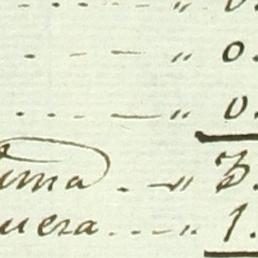 . . . - „ 0.
. - - - „ 0.
. . . - „ 0.
uma . - „ 3.
uera . . . - „ 1.